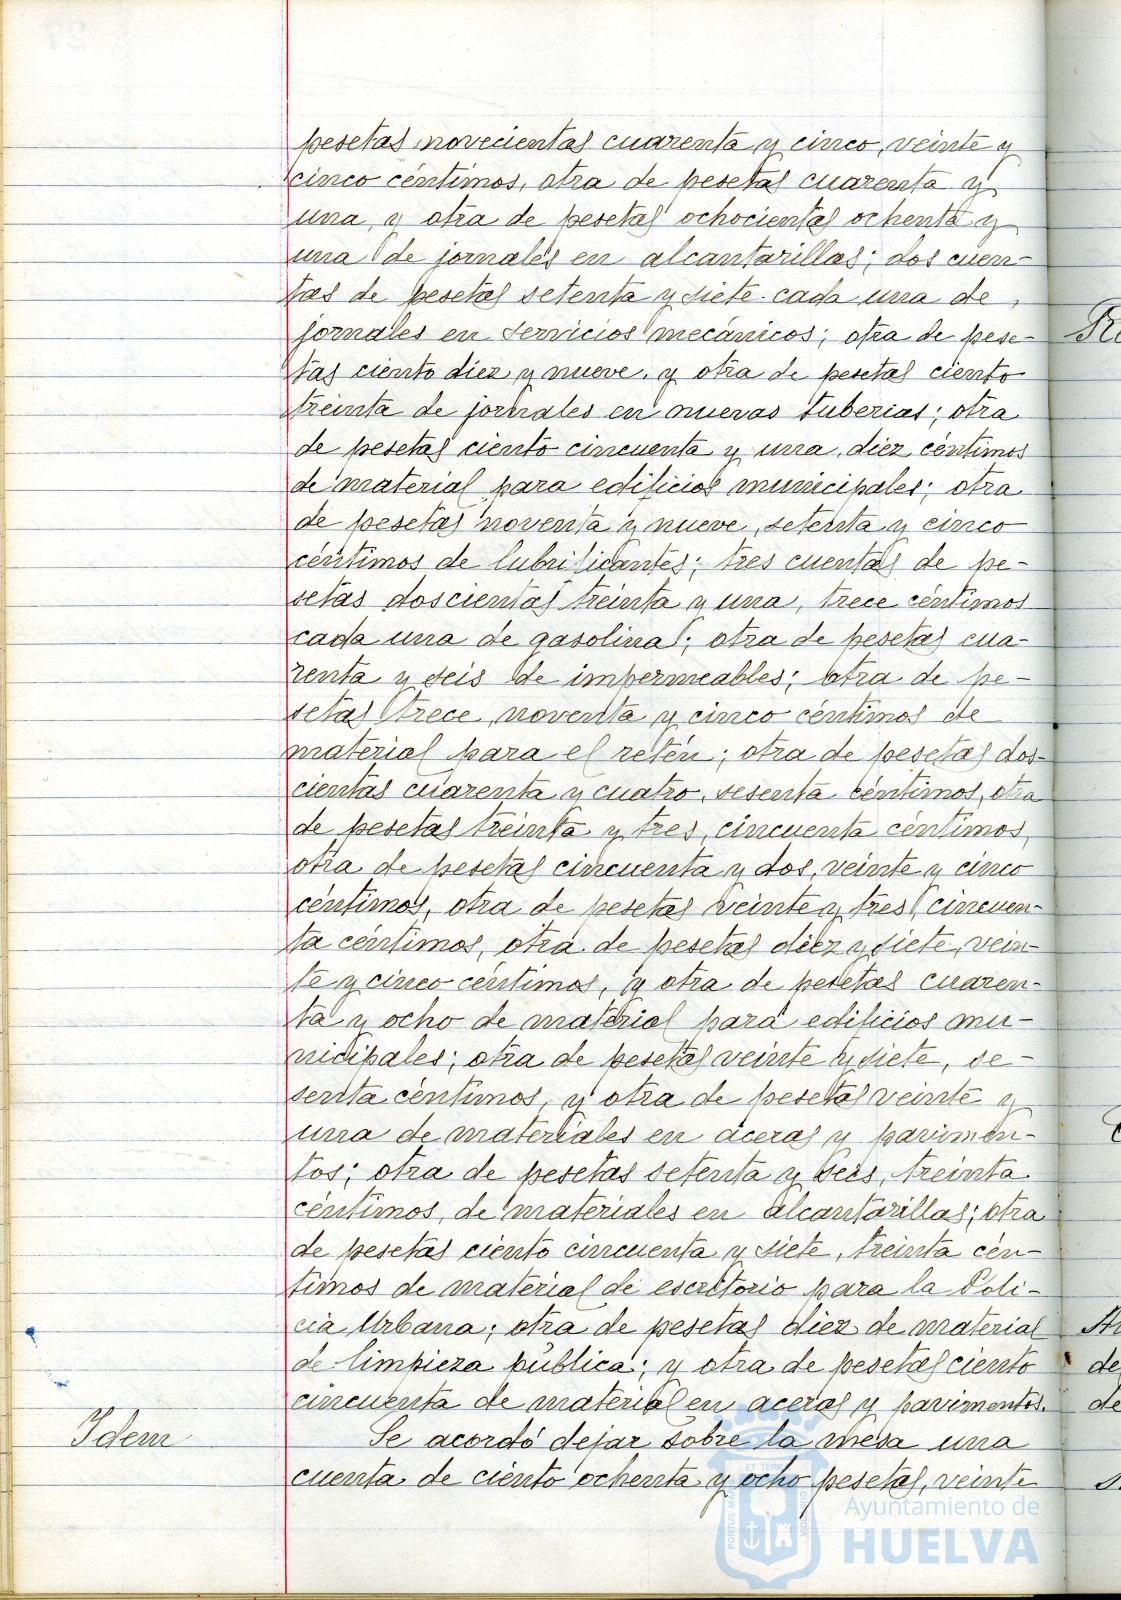 pesetas novecientas cuarenta y cinco, veinte y
cinco céntimos, otra de pesetas cuarenta y
una, y otra de pesetas ochocientas ochenta y
una de jornales en alcantarillas; dos cuen-
tas de pesetas setenta y siete cada una de
jornales en servicios mecánicos; otra de pese-
tas ciento diez y nueve, y otra de pesetas ciento
treinta de jornales en nuevas tuberias; otra
de pesetas ciento cincuenta y una, diez céntimos
de material para edificios municipales; otra
de pesetas noventa y nueve, setenta y cinco
céntimos de lubrificantes; tres cuentas de pe-
setas doscientas treinta y una, trece céntimos
cada una de gasolina; otra de pesetas cua-
renta y seis de impermeables; otra de pe-
setas trece, noventa y cinco céntimos de
material para el retén; otra de pesetas dos-
cientas cuarenta y cuatro, sesenta céntimos, otra
de pesetas treinta y tres, cincuenta céntimos,
otra de pesetas cincuenta y dos, veinte y cinco
céntimos, otra de pesetas veinte y tres, cincuen-
ta céntimos, otra de pesetas diez y siete, vein-
te y cinco céntimos, y otra de pesetas cuaren-
ta y ocho de material para edificios mu-
nicipales; otra de pesetas veinte y siete, se-
senta céntimos, y otra de pesetas veinte y
una de materiales en aceras y pavimen-
tos; otra de pesetas setenta y seis, treinta
céntimos, de materiales en alcantarillas; otra
de pesetas ciento cincuenta y siete, treinta cén-
timos de material de escritorio para la Poli-
cia Urbana; otra de pesetas diez de material
de limpieza pública; y otra de pesetas ciento
cincuenta de material en aceras y pavimentos.
Idem Se acordó dejar sobre la mesa una
cuenta de ciento ochenta y ocho pesetas, veinte
Ayuntamiento de
HUELVA